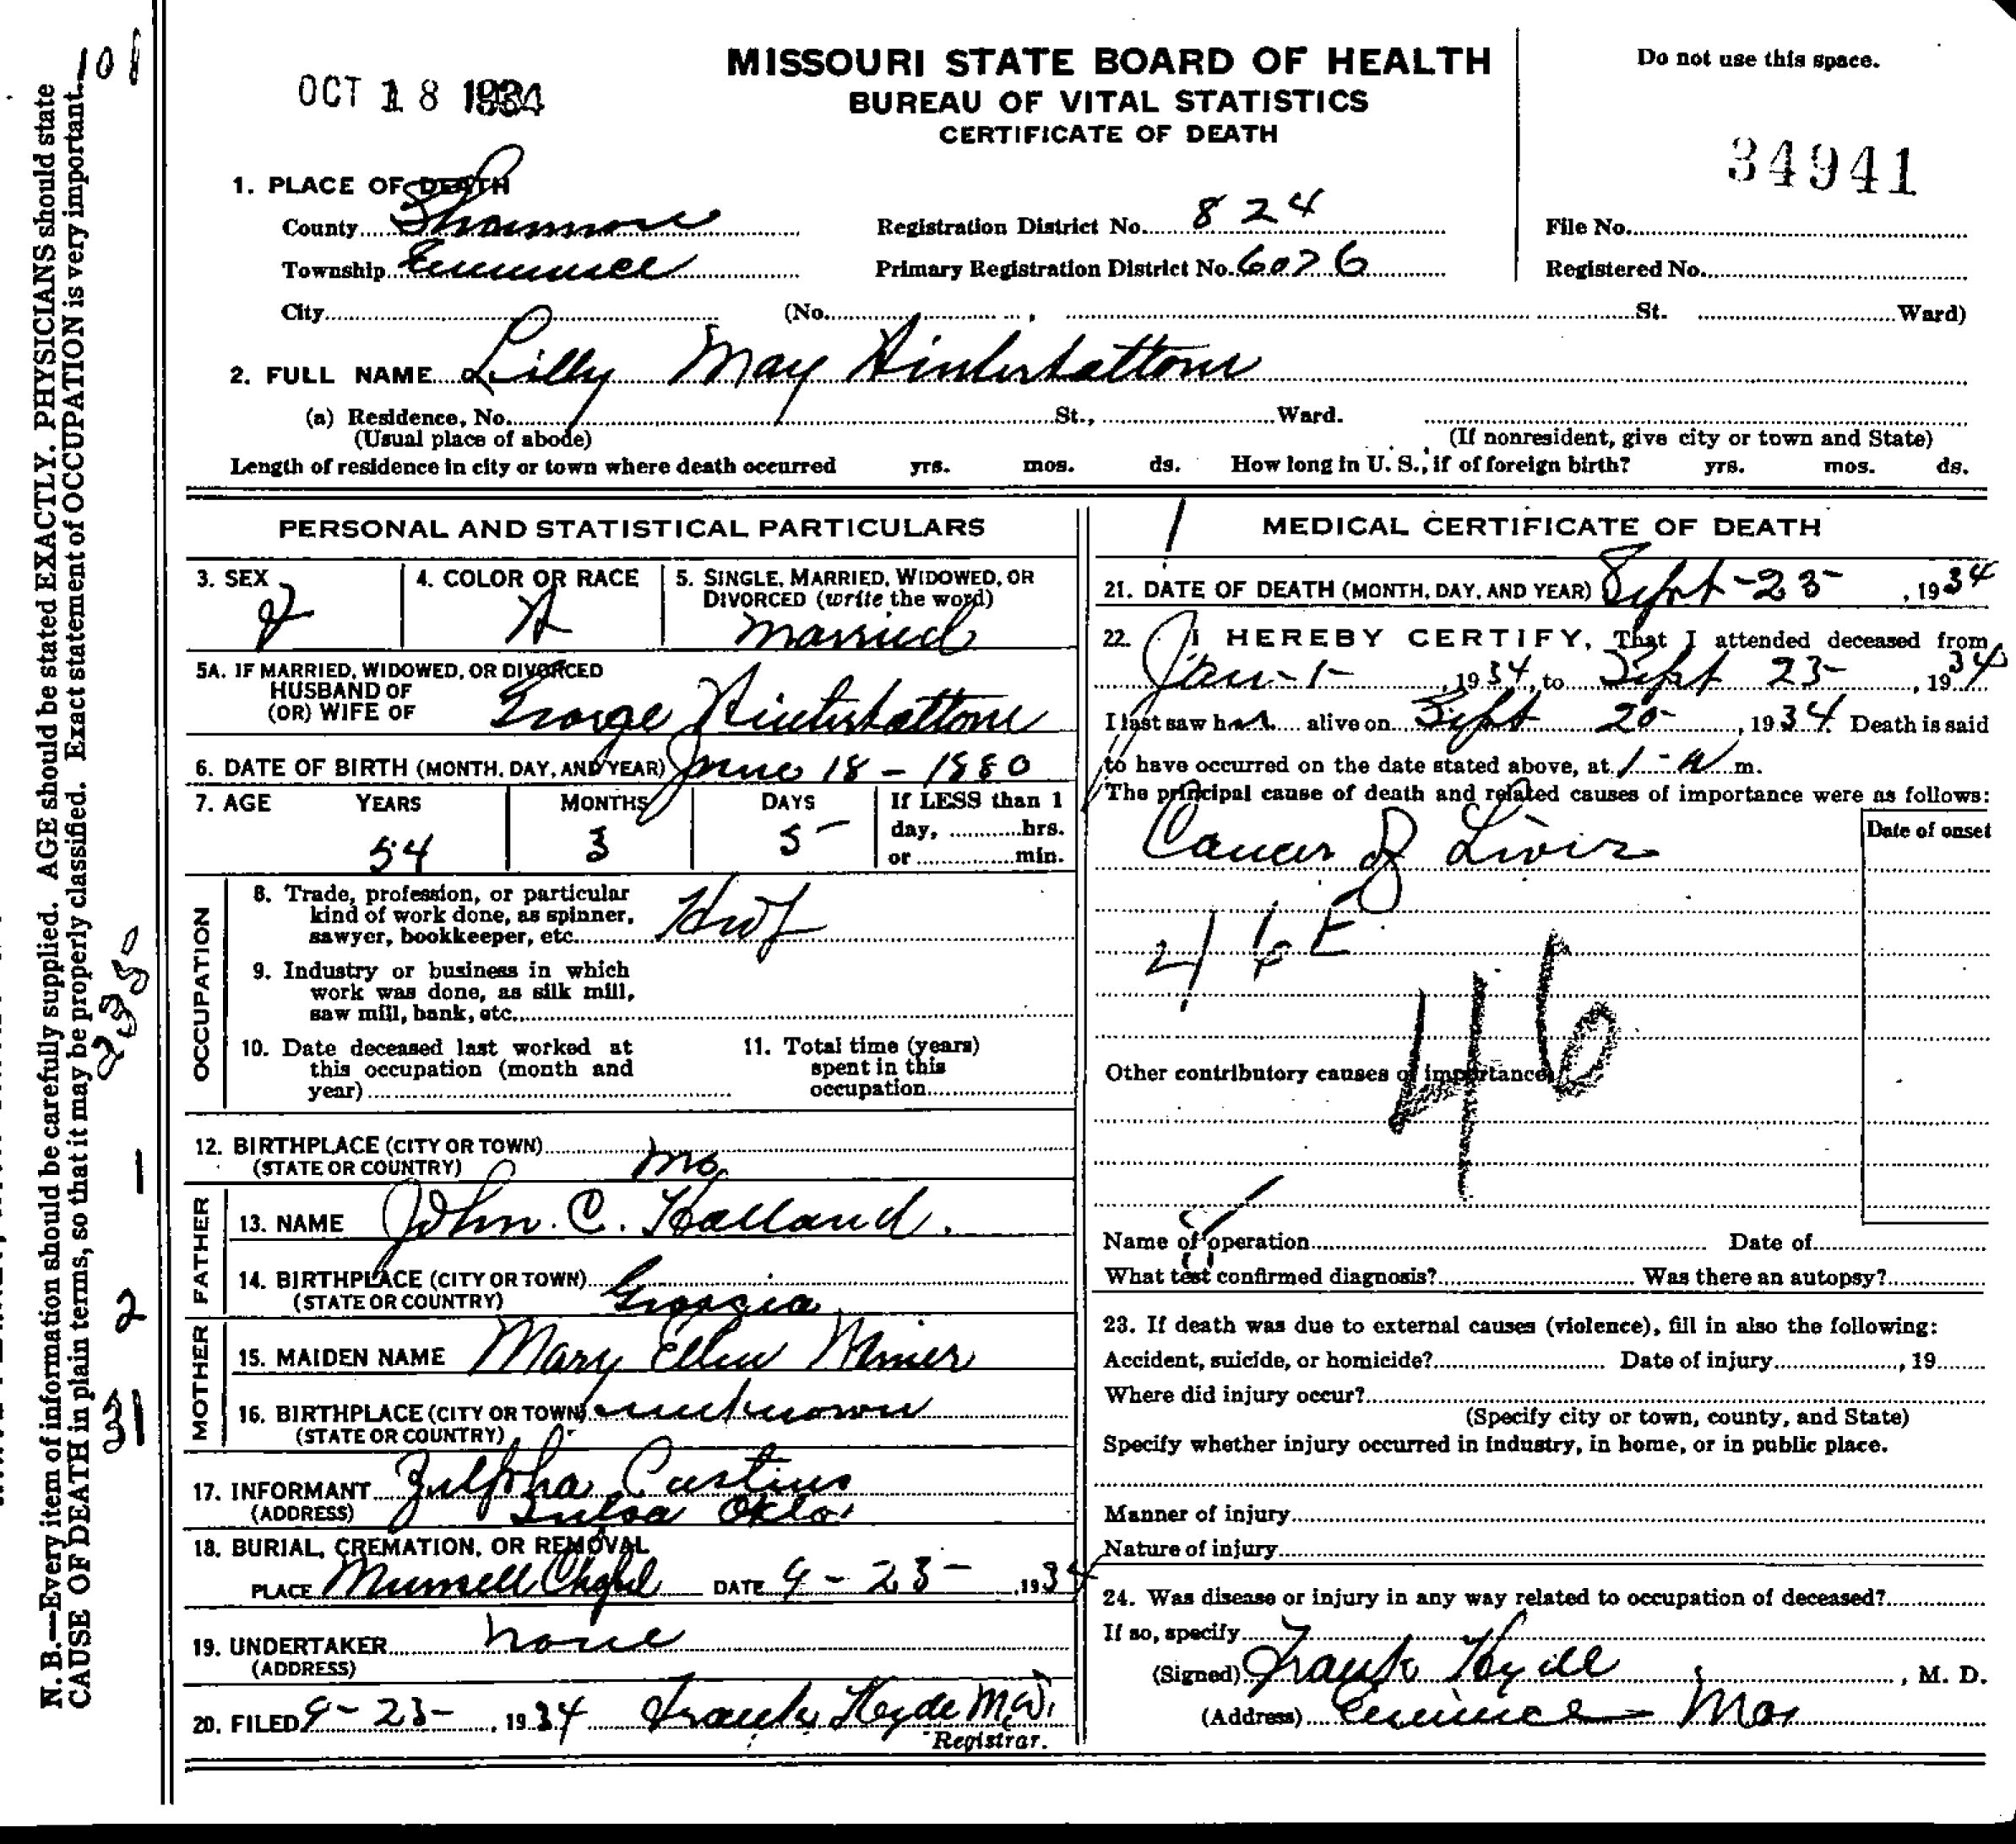 OCT 18 1934
MISSOURI STATE BOARD OF HEALTH
BUREAU OF VITAL STATISTICS
CERTIFICATE OF DEATH
Do not use this space.
34941
1. PLACE OF DEATH
County Shannon Registration District No. 824 File No.
Township Eminence Primary Registration District No. 6076 Registered No.
City (No. , St. Ward)
2. FULL NAME Lilly May Hinterbattom
(a) Residence, No. St., Ward.
(Usual place of abode) (If nonresident, give city or town and State)
Length of residence in city or town where death occurred yrs. mos. ds. How long in U. S., if of foreign birth? yrs. mos. ds.
PERSONAL AND STATISTICAL PARTICULARS
3. SEX 4. COLOR OR RACE 5. SINGLE, MARRIED, WIDOWED, OR
DIVORCED (write the word)
F W married
5A. IF MARRIED, WIDOWED, OR DIVORCED
HUSBAND OF
(OR) WIFE OF George Hinterbattom
6. DATE OF BIRTH (MONTH, DAY, AND YEAR) June 18 - 1880
7. AGE YEARS MONTHS DAYS If LESS than 1
day, hrs.
or min.
54 3 5
OCCUPATION
8. Trade, profession, or particular
kind of work done, as spinner,
sawyer, bookkeeper, etc. Hwf
9. Industry or business in which
work was done, as silk mill,
saw mill, bank, etc.
10. Date deceased last worked at
this occupation (month and
year)
11. Total time (years)
spent in this
occupation
12. BIRTHPLACE (CITY OR TOWN)
(STATE OR COUNTRY) Mo.
FATHER
13. NAME John. C. Holland.
14. BIRTHPLACE (CITY OR TOWN)
(STATE OR COUNTRY) Georgia
MOTHER
15. MAIDEN NAME Mary Ellen
16. BIRTHPLACE (CITY OR TOWN) unknown
(STATE OR COUNTRY)
17. INFORMANT Zulpha
(ADDRESS) Tulsa Okla.
18. BURIAL, CREMATION, OR REMOVAL
PLACE DATE 9 - 23 - , 1934
19. UNDERTAKER none
(ADDRESS)
20. FILED 9 - 23 - , 1934 Frank Hyde M.D.
Registrar.
MEDICAL CERTIFICATE OF DEATH
21. DATE OF DEATH (MONTH, DAY, AND YEAR) Sept - 23 - , 1934
22. I HEREBY CERTIFY, That I attended deceased from
Jan - 1 - , 1934, to Sept 23 - , 1934
I last saw her alive on Sept 20 - , 1934. Death is said
to have occurred on the date stated above, at 1 - a m.
The principal cause of death and related causes of importance were as follows:
Date of onset
Cancer of Liver
46E
46
Other contributory causes of importance
Name of operation Date of
What test confirmed diagnosis? Was there an autopsy?
23. If death was due to external causes (violence), fill in also the following:
Accident, suicide, or homicide? Date of injury , 19
Where did injury occur?
(Specify city or town, county, and State)
Specify whether injury occurred in industry, in home, or in public place.
Manner of injury
Nature of injury
24. Was disease or injury in any way related to occupation of deceased?
If so, specify
(Signed) Frank Hyde , M. D.
(Address) Eminence - Mo.
N. B.—Every item of information should be carefully supplied. AGE should be stated EXACTLY. PHYSICIANS should state
CAUSE OF DEATH in plain terms, so that it may be properly classified. Exact statement of OCCUPATION is very important.
1
2
31